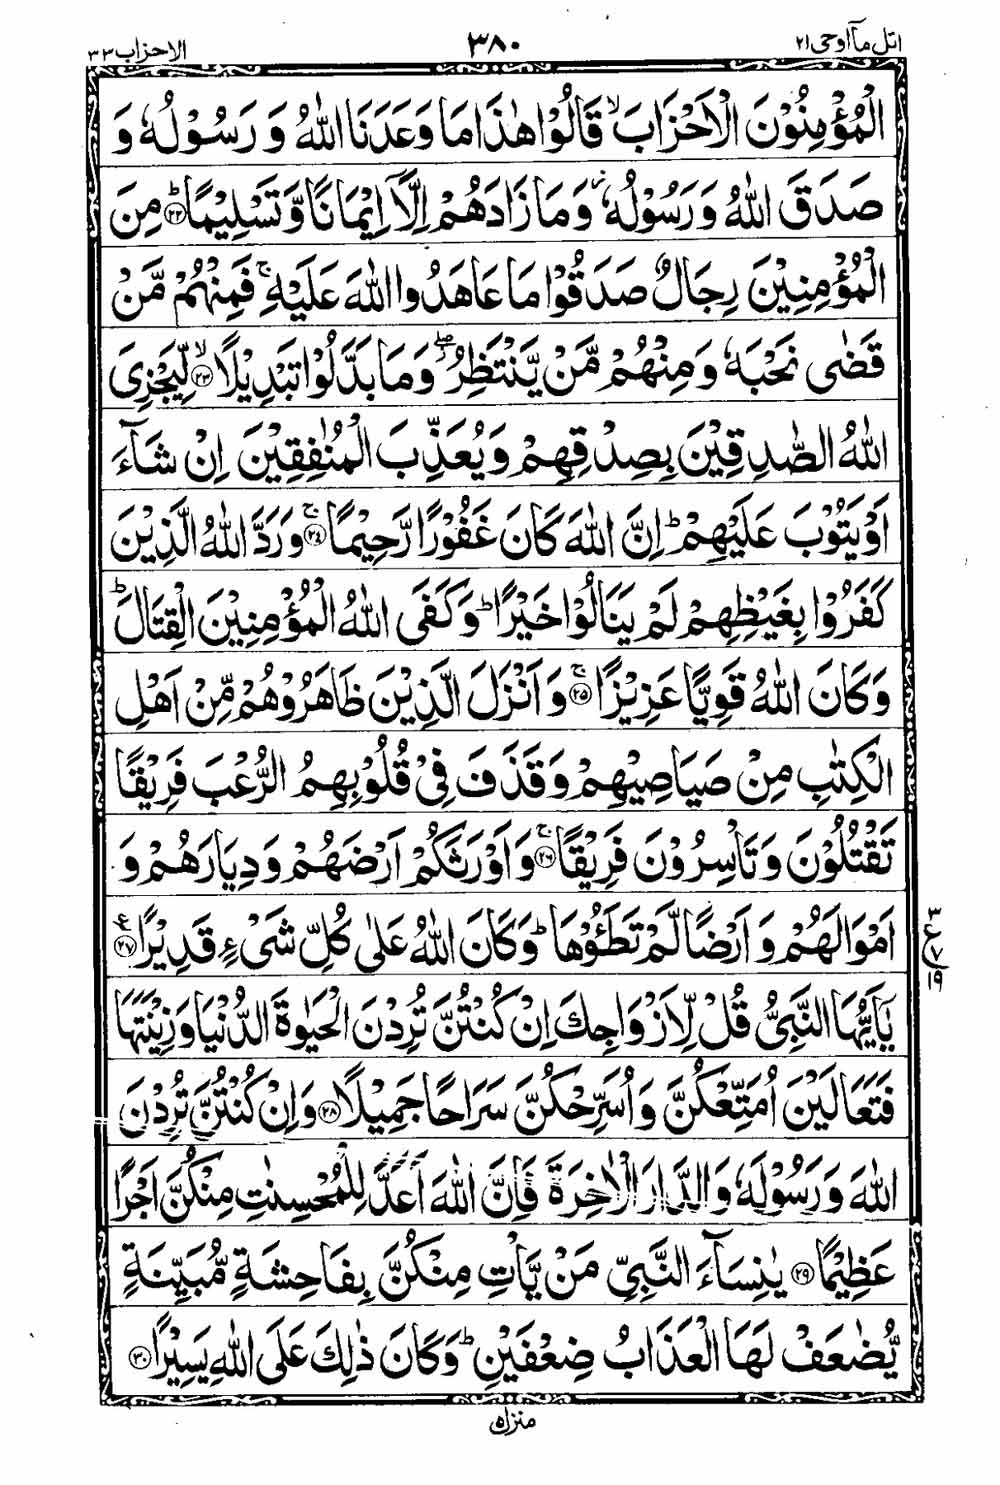 اتل مآاوحی ۲۱
۳۸۰
الاحزاب ۳۳
الۡمُؤۡمِنُوۡنَ الۡاَحۡزَابَ ۙ قَالُوۡا هٰذَا مَا وَعَدَنَا اللّٰهُ وَ رَسُوۡلُهٗ وَ
صَدَقَ اللّٰهُ وَ رَسُوۡلُهٗ ۫ وَ مَا زَادَهُمۡ اِلَّاۤ اِيۡمَانًا وَّ تَسۡلِيۡمًا ؕ﴿۲۲﴾ مِنَ
الۡمُؤۡمِنِيۡنَ رِجَالٌ صَدَقُوۡا مَا عَاهَدُوا اللّٰهَ عَلَيۡهِ ۚ فَمِنۡهُمۡ مَّنۡ
قَضٰى نَحۡبَهٗ وَ مِنۡهُمۡ مَّنۡ يَّنۡتَظِرُ ۖ وَ مَا بَدَّلُوۡا تَبۡدِيۡلًا ۙ﴿۲۳﴾ لِّيَجۡزِىَ
اللّٰهُ الصّٰدِقِيۡنَ بِصِدۡقِهِمۡ وَ يُعَذِّبَ الۡمُنٰفِقِيۡنَ اِنۡ شَآءَ
اَوۡ يَتُوۡبَ عَلَيۡهِمۡ ؕ اِنَّ اللّٰهَ كَانَ غَفُوۡرًا رَّحِيۡمًا ۚ﴿۲۴﴾ وَ رَدَّ اللّٰهُ الَّذِيۡنَ
كَفَرُوۡا بِغَيۡظِهِمۡ لَمۡ يَنَالُوۡا خَيۡرًا ؕ وَ كَفَى اللّٰهُ الۡمُؤۡمِنِيۡنَ الۡقِتَالَ ؕ
وَ كَانَ اللّٰهُ قَوِيًّا عَزِيۡزًا ۚ﴿۲۵﴾ وَ اَنۡزَلَ الَّذِيۡنَ ظَاهَرُوۡهُمۡ مِّنۡ اَهۡلِ
الۡكِتٰبِ مِنۡ صَيَاصِيۡهِمۡ وَ قَذَفَ فِىۡ قُلُوۡبِهِمُ الرُّعۡبَ فَرِيۡقًا
تَقۡتُلُوۡنَ وَ تَاۡسِرُوۡنَ فَرِيۡقًا ۚ﴿۲۶﴾ وَ اَوۡرَثَكُمۡ اَرۡضَهُمۡ وَ دِيَارَهُمۡ وَ
اَمۡوَالَهُمۡ وَ اَرۡضًا لَّمۡ تَطَـُٔوۡهَا ؕ وَ كَانَ اللّٰهُ عَلٰى كُلِّ شَىۡءٍ قَدِيۡرًا ﴿۲۷﴾ ع
۳
ع
۷
۱۹
يٰۤاَيُّهَا النَّبِىُّ قُلۡ لِّاَزۡوَاجِكَ اِنۡ كُنۡتُنَّ تُرِدۡنَ الۡحَيٰوةَ الدُّنۡيَا وَ زِيۡنَتَهَا
فَتَعَالَيۡنَ اُمَتِّعۡكُنَّ وَ اُسَرِّحۡكُنَّ سَرَاحًا جَمِيۡلًا ﴿۲۸﴾ وَ اِنۡ كُنۡتُنَّ تُرِدۡنَ
اللّٰهَ وَ رَسُوۡلَهٗ وَ الدَّارَ الۡاٰخِرَةَ فَاِنَّ اللّٰهَ اَعَدَّ لِلۡمُحۡسِنٰتِ مِنۡكُنَّ اَجۡرًا
عَظِيۡمًا ﴿۲۹﴾ يٰنِسَآءَ النَّبِىِّ مَنۡ يَّاۡتِ مِنۡكُنَّ بِفَاحِشَةٍ مُّبَيِّنَةٍ
يُّضٰعَفۡ لَهَا الۡعَذَابُ ضِعۡفَيۡنِ ؕ وَ كَانَ ذٰلِكَ عَلَى اللّٰهِ يَسِيۡرًا ﴿۳۰﴾
منزل ۵